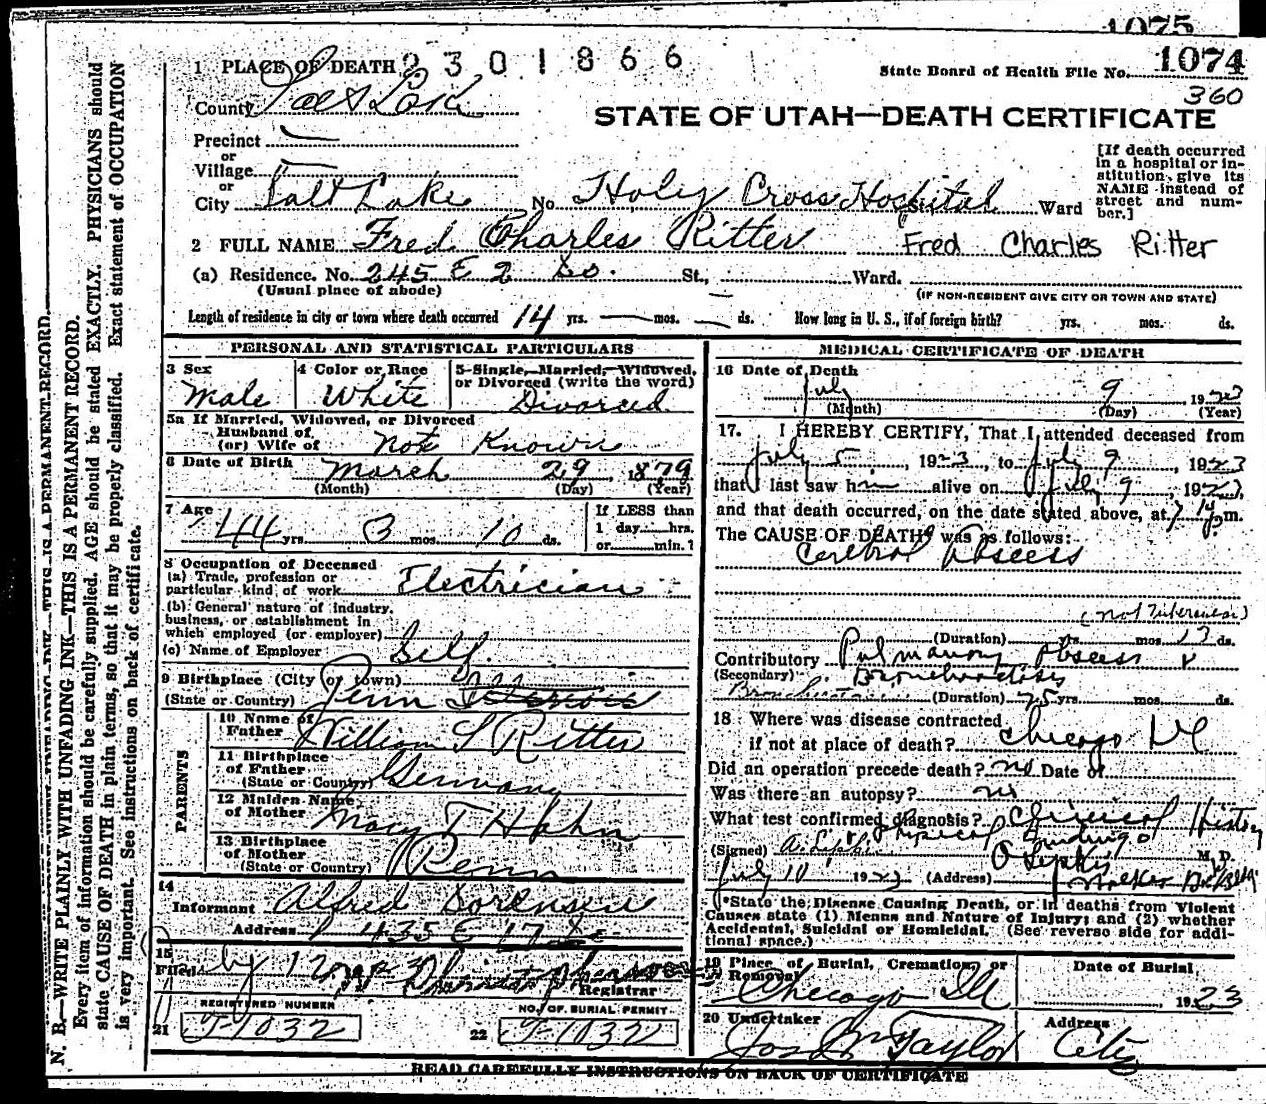 1075
1074
State Board of Health File No.
2301866
360
1 PLACE OF DEATH
County Salt Lake
STATE OF UTAH—DEATH CERTIFICATE
Precinct
or
Village
or
City Salt Lake No. Holy Cross Hospital St., Ward
[If death occurred
in a hospital or in-
stitution, give its
NAME instead of
street and num-
ber.]
2 FULL NAME Fred Charles Ritter Fred Charles Ritter
(a) Residence. No. 245 E 2 So. St., Ward.
(Usual place of abode) (IF NON-RESIDENT GIVE CITY OR TOWN AND STATE)
Length of residence in city or town where death occurred 14 yrs. mos. ds. How long in U. S., if of foreign birth? yrs. mos. ds.
PERSONAL AND STATISTICAL PARTICULARS
3 Sex Male
4 Color or Race White
5 Single, Married, Widowed,
or Divorced (write the word)
Divorced
5a If Married, Widowed, or Divorced
Husband of
(or) Wife of Not Known
6 Date of Birth March 29 1879
(Month) (Day) (Year)
7 Age 44 yrs. 3 mos. 10 ds.
If LESS than
1 day....hrs.
or....min.?
8 Occupation of Deceased
(a) Trade, profession or
particular kind of work Electrician
(b) General nature of industry,
business, or establishment in
which employed (or employer)
(c) Name of Employer Self
9 Birthplace (City or town)
(State or Country) Penn
PARENTS
10 Name of
Father William S Ritter
11 Birthplace
of Father
(State or Country) Germany
12 Maiden Name
of Mother Mary T Hahn
13 Birthplace
of Mother
(State or Country) Penn
14
Informant Alfred Sorensen
Address 435 E 17 So
15
Filed
Registrar
REGISTERED NUMBER
21 T-1032
NO. OF BURIAL PERMIT
22 T-1032
MEDICAL CERTIFICATE OF DEATH
16 Date of Death
July 9 1923
(Month) (Day) (Year)
17. I HEREBY CERTIFY, That I attended deceased from
July 5, 1923, to July 9, 1923
that I last saw him alive on July 9, 1923,
and that death occurred, on the date stated above, at 7 m.
The CAUSE OF DEATH* was as follows:
Cerebral Abscess
(not tuberculous)
(Duration) yrs. mos. 13 ds.
Contributory Pulmonary Abscess &
(Secondary) Bronchiectasis
(Duration) 25 yrs. mos. ds.
18 Where was disease contracted
if not at place of death? Chicago Ill
Did an operation precede death? no Date of
Was there an autopsy? no
What test confirmed diagnosis? Clinical History
Physical findings
(Signed) M.D.
July 10 1923 (Address) Walker Bk Bldg
*State the Disease Causing Death, or in deaths from Violent
Causes state (1) Means and Nature of Injury; and (2) whether
Accidental, Suicidal or Homicidal. (See reverse side for addi-
tional space.)
19 Place of Burial, Cremation, or
Removal
Chicago Ill
Date of Burial
1923
20 Undertaker
Jos Wm Taylor
Address
City
READ CAREFULLY INSTRUCTIONS ON BACK OF CERTIFICATE
N. B.—WRITE PLAINLY WITH UNFADING INK—THIS IS A PERMANENT RECORD.
Every item of information should be carefully supplied. AGE should be stated EXACTLY. PHYSICIANS should
state CAUSE OF DEATH in plain terms, so that it may be properly classified. Exact statement of OCCUPATION
is very important. See instructions on back of certificate.